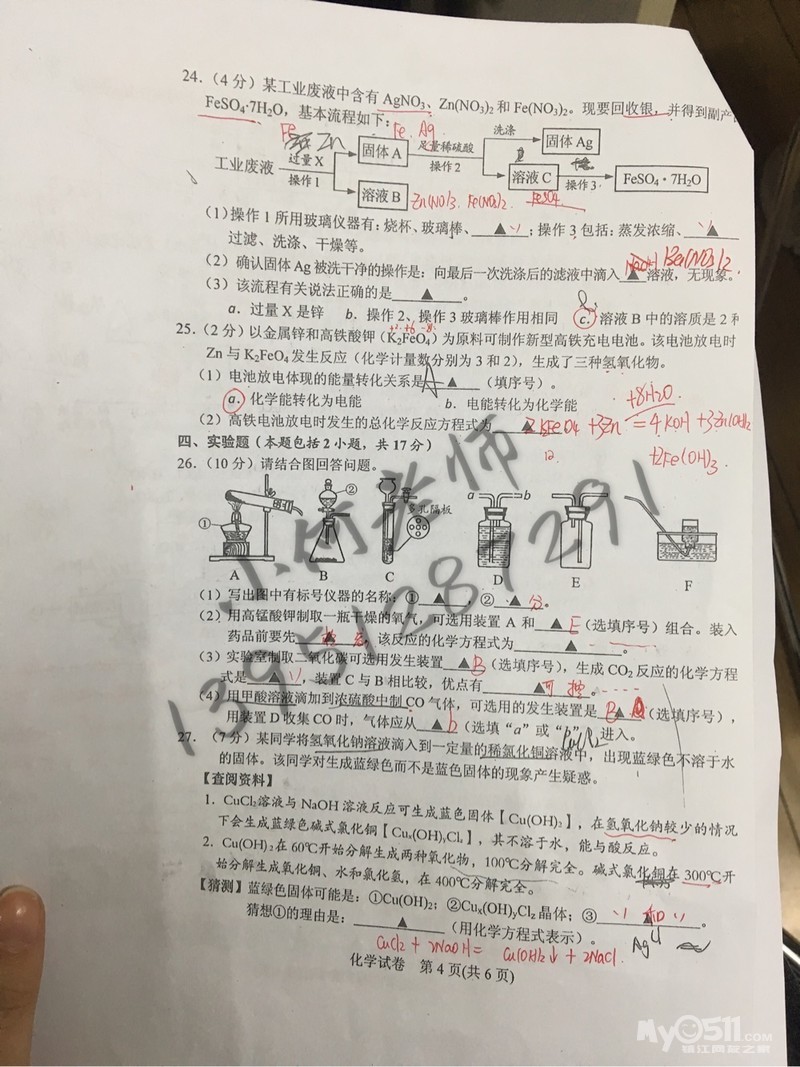 24.（4分）某工业废液中含有 AgNO₃、Zn(NO₃)₂ 和 Fe(NO₃)₂。现要回收银，并得到副产
FeSO₄·7H₂O，基本流程如下：
Fe Zn Fe、Ag 洗涤 固体 Ag
工业废液 过量 X 操作1 固体 A 足量稀硫酸 操作2 溶液 C 操作3 FeSO₄·7H₂O
溶液 B Zn(NO₃)₂ Fe(NO₃)₂ FeSO₄
（1）操作 1 所用玻璃仪器有：烧杯、玻璃棒、▲；操作 3 包括：蒸发浓缩、▲
过滤、洗涤、干燥等。
（2）确认固体 Ag 被洗干净的操作是：向最后一次洗涤后的滤液中滴入▲溶液，无现象。
（3）该流程有关说法正确的是▲。
a．过量 X 是锌 b．操作 2、操作 3 玻璃棒作用相同 c．溶液 B 中的溶质是 2 种
25.（2分）以金属锌和高铁酸钾（K₂FeO₄）为原料可制作新型高铁充电电池。该电池放电时
Zn 与 K₂FeO₄ 发生反应（化学计量数分别为 3 和 2），生成了三种氢氧化物。
（1）电池放电体现的能量转化关系是 A ▲（填序号）。
a．化学能转化为电能 b．电能转化为化学能
+8H₂O
（2）高铁电池放电时发生的总化学反应方程式为▲ 2K₂FeO₄ +3Zn = 4KOH +3Zn(OH)₂
+2Fe(OH)₃
四、实验题（本题包括 2 小题，共 17 分）
26.（10分）请结合图回答问题。
① ② 多孔隔板 a b
A B C D E F
（1）写出图中有标号仪器的名称：①▲，②▲分。
（2）用高锰酸钾制取一瓶干燥的氧气，可选用装置 A 和▲ E（选填序号）组合。装入
药品前要先▲，该反应的化学方程式为▲。
（3）实验室制取二氧化碳可选用发生装置▲ B（选填序号），生成 CO₂ 反应的化学方程
式是▲，装置 C 与 B 相比较，优点有▲可控。
（4）用甲酸溶液滴加到浓硫酸中制 CO 气体，可选用的发生装置是 B ▲（选填序号），
用装置 D 收集 CO 时，气体应从▲ b（选填“a”或“b”）进入。
27.（7分）某同学将氢氧化钠溶液滴入到一定量的稀氯化铜溶液中，出现蓝绿色不溶于水
CuCl₂
的固体。该同学对生成蓝绿色而不是蓝色固体的现象产生疑惑。
【查阅资料】
1．CuCl₂ 溶液与 NaOH 溶液反应可生成蓝色固体【Cu(OH)₂】，在氢氧化钠较少的情况
下会生成蓝绿色碱式氯化铜【Cuₓ(OH)ᵧCl_z】，其不溶于水，能与酸反应。
2．Cu(OH)₂ 在 60℃开始分解生成两种氧化物，100℃分解完全。碱式氯化铜在 300℃开
始分解生成氧化铜、水和氯化氢，在 400℃分解完全。
【猜测】蓝绿色固体可能是：①Cu(OH)₂；②Cuₓ(OH)ᵧCl_z 晶体；③ ▲ 和。
猜想①的理由是：▲（用化学方程式表示）。
CuCl₂ + 2NaOH = Cu(OH)₂↓ + 2NaCl
化学试卷 第 4 页(共 6 页)
小何老师
13951287291
My0511.COM
镇江网友之家